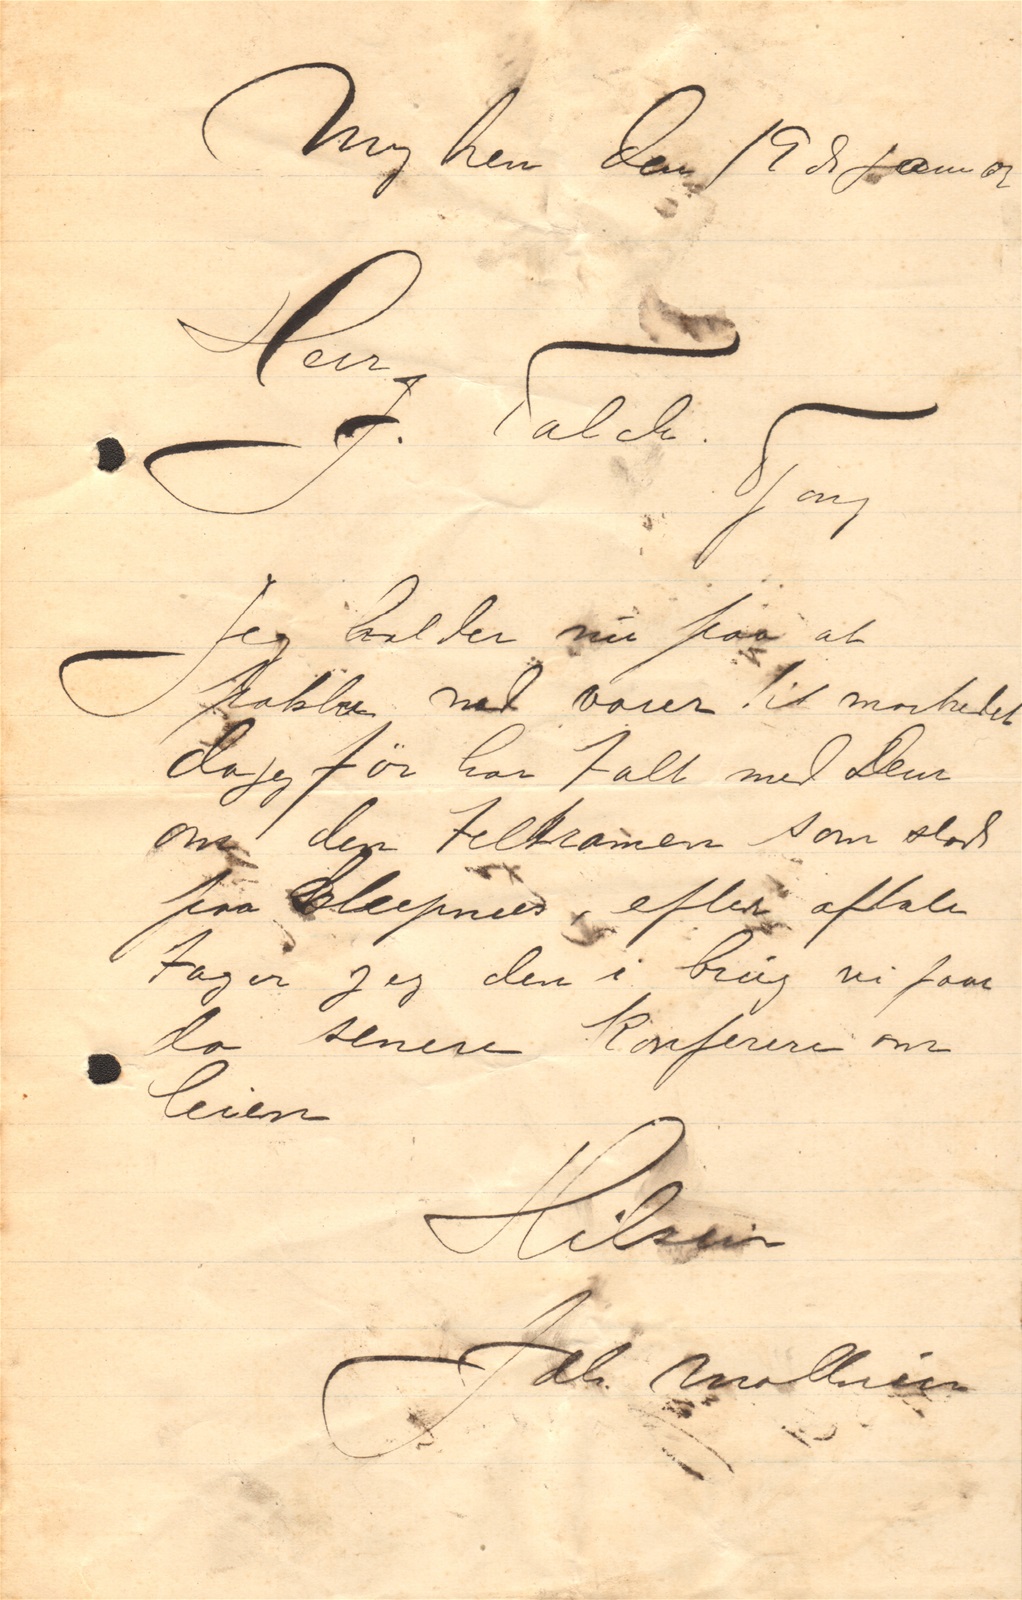 Myken den 19de januar
Herr
J. Falch.
Tjong
Jeg holder nu paa at
pakke ned varer til markedet
da jeg før har talt med Dem
om den teltramen som stod
paa Sleepnes, efter aftale
tager jeg den i brug vi faar
da senere Konferere om
leien
Hilsen
Joh.